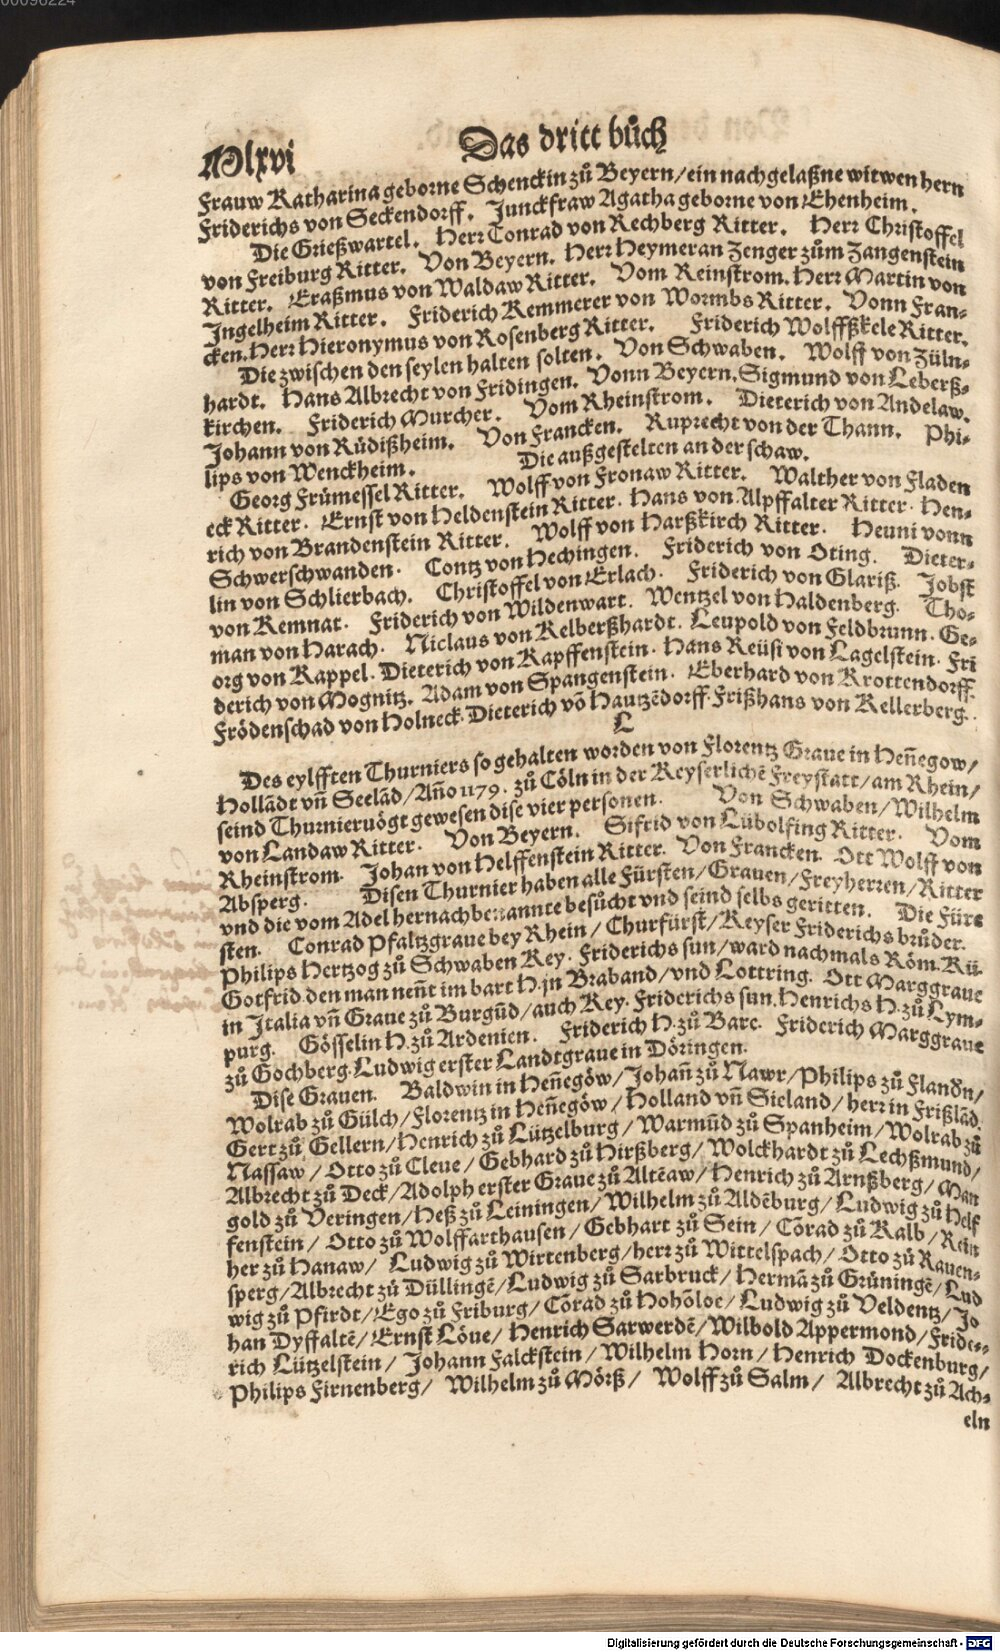 00096224
Mlxvi Das dritt bůch
Frauw Katharina geborne Schenckin zů Beyern/ein nachgelaßne witwen hern
Friderichs von Seckendorff. Junckfraw Agatha geborne von Ehenheim.
Die Grießwartel. Herr Conrad von Rechberg Ritter. Herr Christoffel
von Freiburg Ritter. Von Beyern. Herr Heymeran Zenger zům Zangenstein
Ritter. Eraßmus von Waldaw Ritter. Vom Reinstrom. Herr Martin von
Ingelheim Ritter. Friderich Kemmerer von Wormbs Ritter. Vonn Fran-
cken. Herr Hieronymus von Rosenberg Ritter. Friderich Wolffßkele Ritter.
Die zwischen den seylen halten solten. Von Schwaben. Wolff von Züln-
hardt. Hans Albrecht von Fridingen. Vonn Beyern. Sigmund von Leberß-
kirchen. Friderich Murcher. Vom Rheinstrom. Dieterich von Andelaw.
Johann von Rüdißheim. Von Francken. Ruprecht von der Thann. Phi-
lips von Wenckheim. Die außgestelten an der schaw.
Georg Frümessel Ritter. Wolff von Fronaw Ritter. Walther von Fladen
eck Ritter. Ernst von Heldenstein Ritter. Hans von Alpffalter Ritter. Hen-
rich von Brandenstein Ritter. Wolff von Harßkirch Ritter. Heuni vonn
Schwerschwanden. Contz von Hechingen. Friderich von Oting. Dieter-
lin von Schlierbach. Christoffel von Erlach. Friderich von Glariß. Jobst
von Kemnat. Friderich von Wildenwart. Wentzel von Haldenberg. Tho-
man von Harach. Niclaus von Kelberßhardt. Leupold von Feldbrunn. Ge-
org von Kappel. Dieterich von Kapffenstein. Hans Reüsi von Lagelstein. Fri
derich von Mognitz. Adam von Spangenstein. Eberhard von Krottendorff.
Frödenschad von Holneck. Dieterich võ Hautzẽdorff. Frißhans von Kellerberg.
L
Des eylfften Thurniers so gehalten worden von Florentz Graue in Heñegow/
Hollãdt vñ Seelãd/Año 1179. zů Cöln in der Keyserlichẽ Freystatt/am Rhein/
seind Thurnieruögt gewesen dise vier personen. Von Schwaben/Wilhelm
von Landaw Ritter. Von Beyern. Sifrid von Lübolfing Ritter. Vom
Rheinstrom. Johan von Helffenstein Ritter. Von Francken. Ott Wolff von
Absperg. Disen Thurnier haben alle Fürsten/Grauen/Freyherren/Ritter
vnd die vom Adel hernachbenannte besůcht vnd seind selbs geritten. Die Fürs
sten. Conrad Pfaltzgraue bey Rhein/Churfürst/Keyser Friderichs brůder.
Philips Hertzog zů Schwaben Key. Friderichs sun/ward nachmals Röm. Kü.
Gotfrid den man neñt im bart H. jn Braband/vnd Lottring. Ott Marggraue
in Italia vñ Graue zů Burgũd/auch Key. Friderichs sun. Henrichs H. zů Lym-
purg. Gösselin H. zů Ardenien. Friderich H. zů Bare. Friderich Marggraue
zů Hochberg. Ludwig erster Landtgraue in Döringen.
Dise Grauen. Baldwin in Heñegöw/Johañ zů Nawr/Philips zů Flandñ/
Wolrab zů Gülch/Florentz in Heñegöw/Holland vñ Sieland/herr in Frißlãd.
Gert zů Gellern/Henrich zů Lützelburg/Warmũd zů Spanheim/Wolrab zů
Nassaw/Otto zů Cleue/Gebhard zů Hirßberg/Wolckhardt zů Lechßmund/
Albrecht zů Deck/Adolph erster Graue zů Altẽaw/Henrich zů Arnßberg/Man
gold zů Veringen/Heß zů Leiningen/Wilhelm zů Aldẽburg/Ludwig zů Helf
fenstein/Otto zů Wolffarthausen/Gebhart zů Sein/Cõrad zů Kalb/Rein
her zů Hanaw/Ludwig zů Wirtenberg/herr zů Wittelspach/Otto zů Rauen-
sperg/Albrecht zů Düllingẽ/Ludwig zů Sarbruck/Hermã zů Grüningẽ/Lud
wig zů Pfirdt/Ego zů Friburg/Cõrad zů Hohõloe/Ludwig zů Veldentz/Jo
han Dyffaltẽ/Ernst Löue/Henrich Sarwerdẽ/Wilbold Appermond/Fride-
rich Lützelstein/Johann Falckstein/Wilhelm Horn/Henrich Dockenburg/
Philips Firnenberg/Wilhelm zů Mörß/Wolff zů Salm/Albrecht zů Ach-
eln
Digitalisierung gefördert durch die Deutsche Forschungsgemeinschaft - DFG